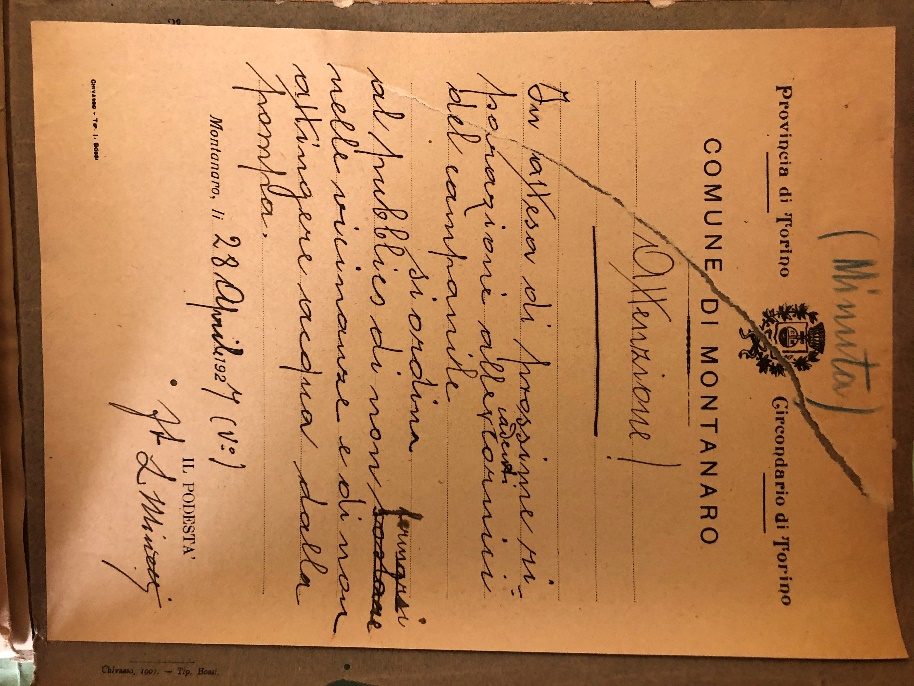 (Minuta)
Provincia di Torino
Circondario di Torino
COMUNE DI MONTANARO
Attenzione!
In attesa di prossime ri-
parazioni alle cornici
del campanile
si ordina
al pubblico di non fermarsi
nelle vicinanze e di non
attingere acqua dalla
pompa.
Montanaro, li 28 Aprile 1927 (V°)
IL PODESTA'
CHIVASSO - TIP. L. BOSSI
Chivasso, 1907. — Tip. Bossi.